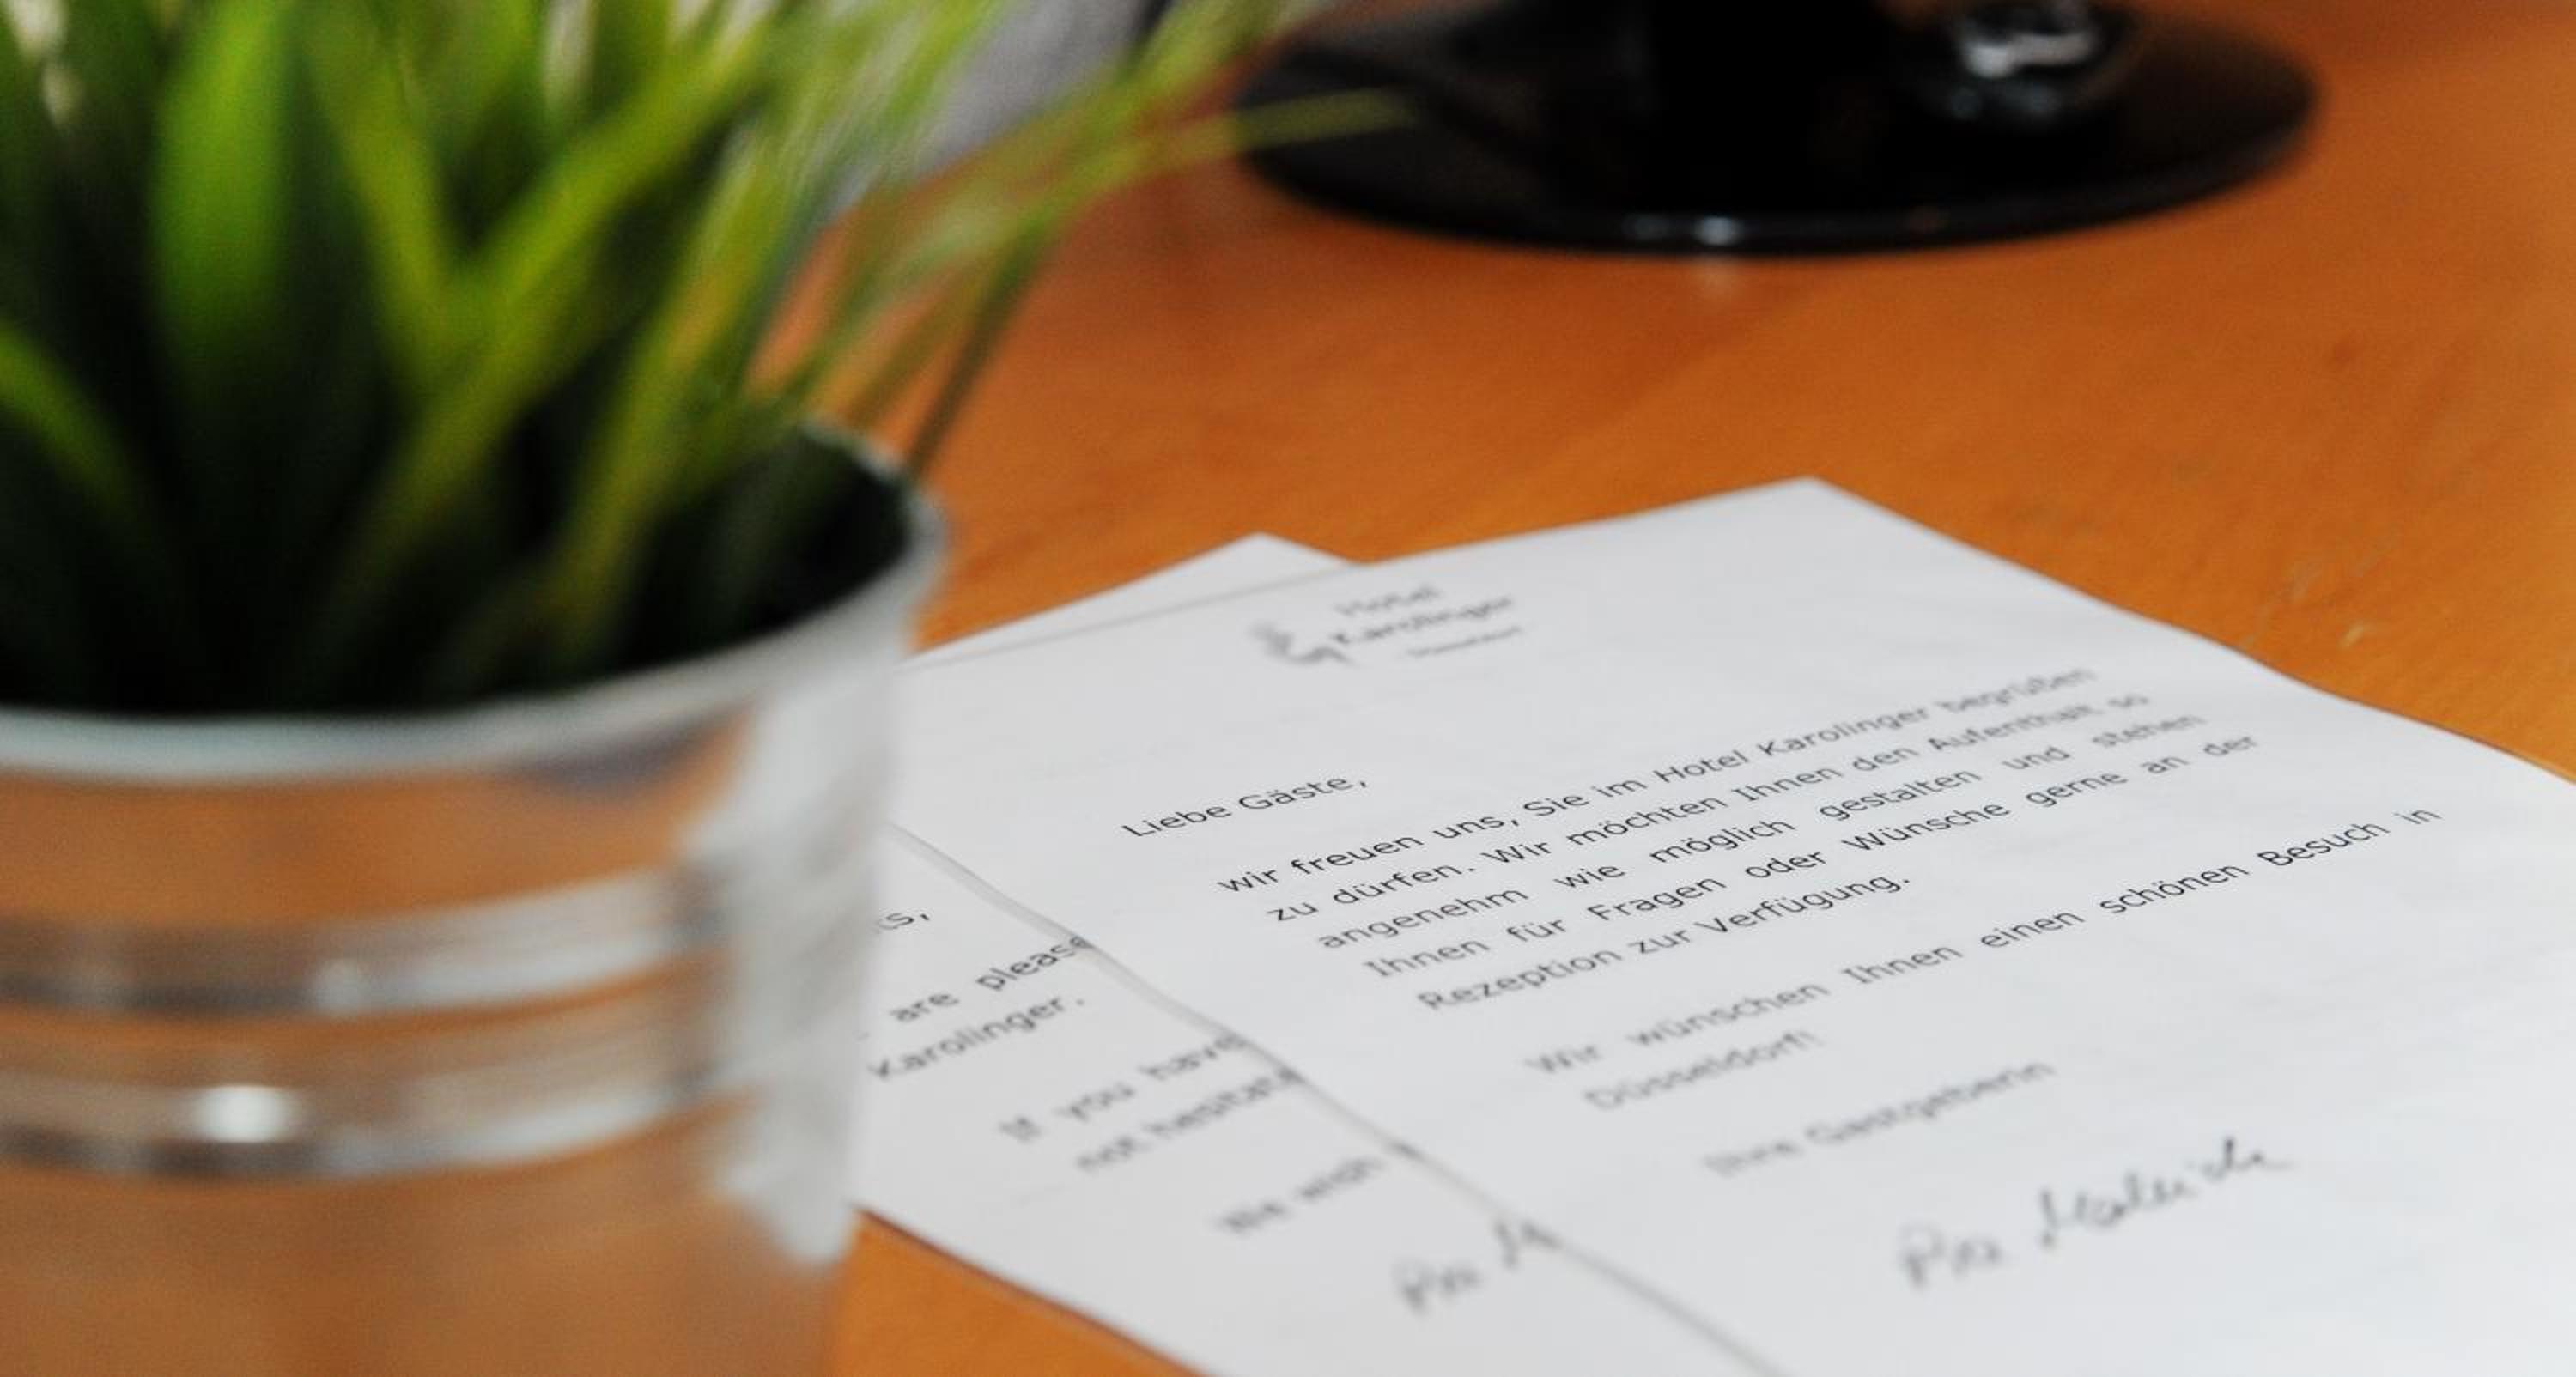 Hotel
Karolinger
Liebe Gäste,
wir freuen uns, Sie im Hotel Karolinger begrüßen
zu dürfen. Wir möchten Ihnen den Aufenthalt so
angenehm wie möglich gestalten und stehen
Ihnen für Fragen oder Wünsche gerne an der
Rezeption zur Verfügung.
Wir wünschen Ihnen einen schönen Besuch in
Düsseldorf!
Ihre Gastgeberin
ts,
are please
Karolinger.
If you have
not hesitate
We wish